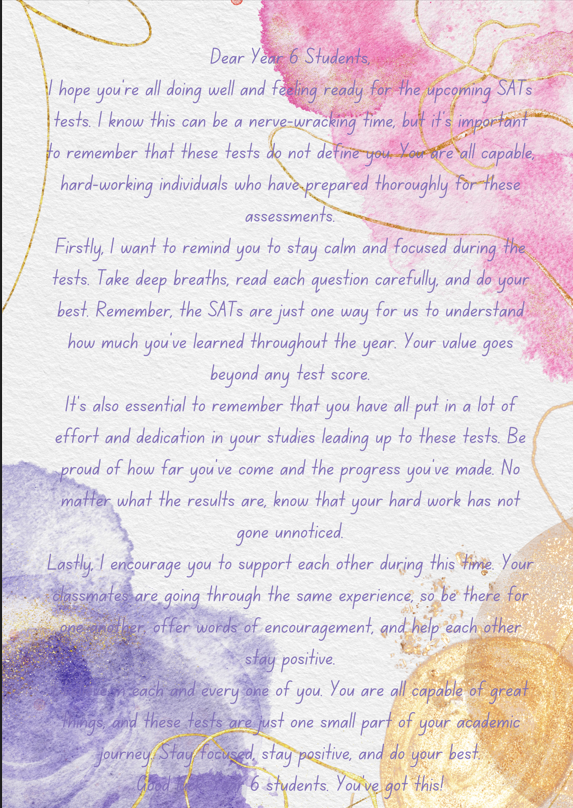 Dear Year 6 Students,
I hope you're all doing well and feeling ready for the upcoming SATs
tests. I know this can be a nerve-wracking time, but it's important
to remember that these tests do not define you. You are all capable,
hard-working individuals who have prepared thoroughly for these
assessments.
Firstly, I want to remind you to stay calm and focused during the
tests. Take deep breaths, read each question carefully, and do your
best. Remember, the SATs are just one way for us to understand
how much you've learned throughout the year. Your value goes
beyond any test score.
It's also essential to remember that you have all put in a lot of
effort and dedication in your studies leading up to these tests. Be
proud of how far you've come and the progress you've made. No
matter what the results are, know that your hard work has not
gone unnoticed.
Lastly, I encourage you to support each other during this time. Your
classmates are going through the same experience, so be there for
one another, offer words of encouragement, and help each other
stay positive.
each and every one of you. You are all capable of great
things, and these tests are just one small part of your academic
journey. Stay focused, stay positive, and do your best.
Good 6 students. You've got this!